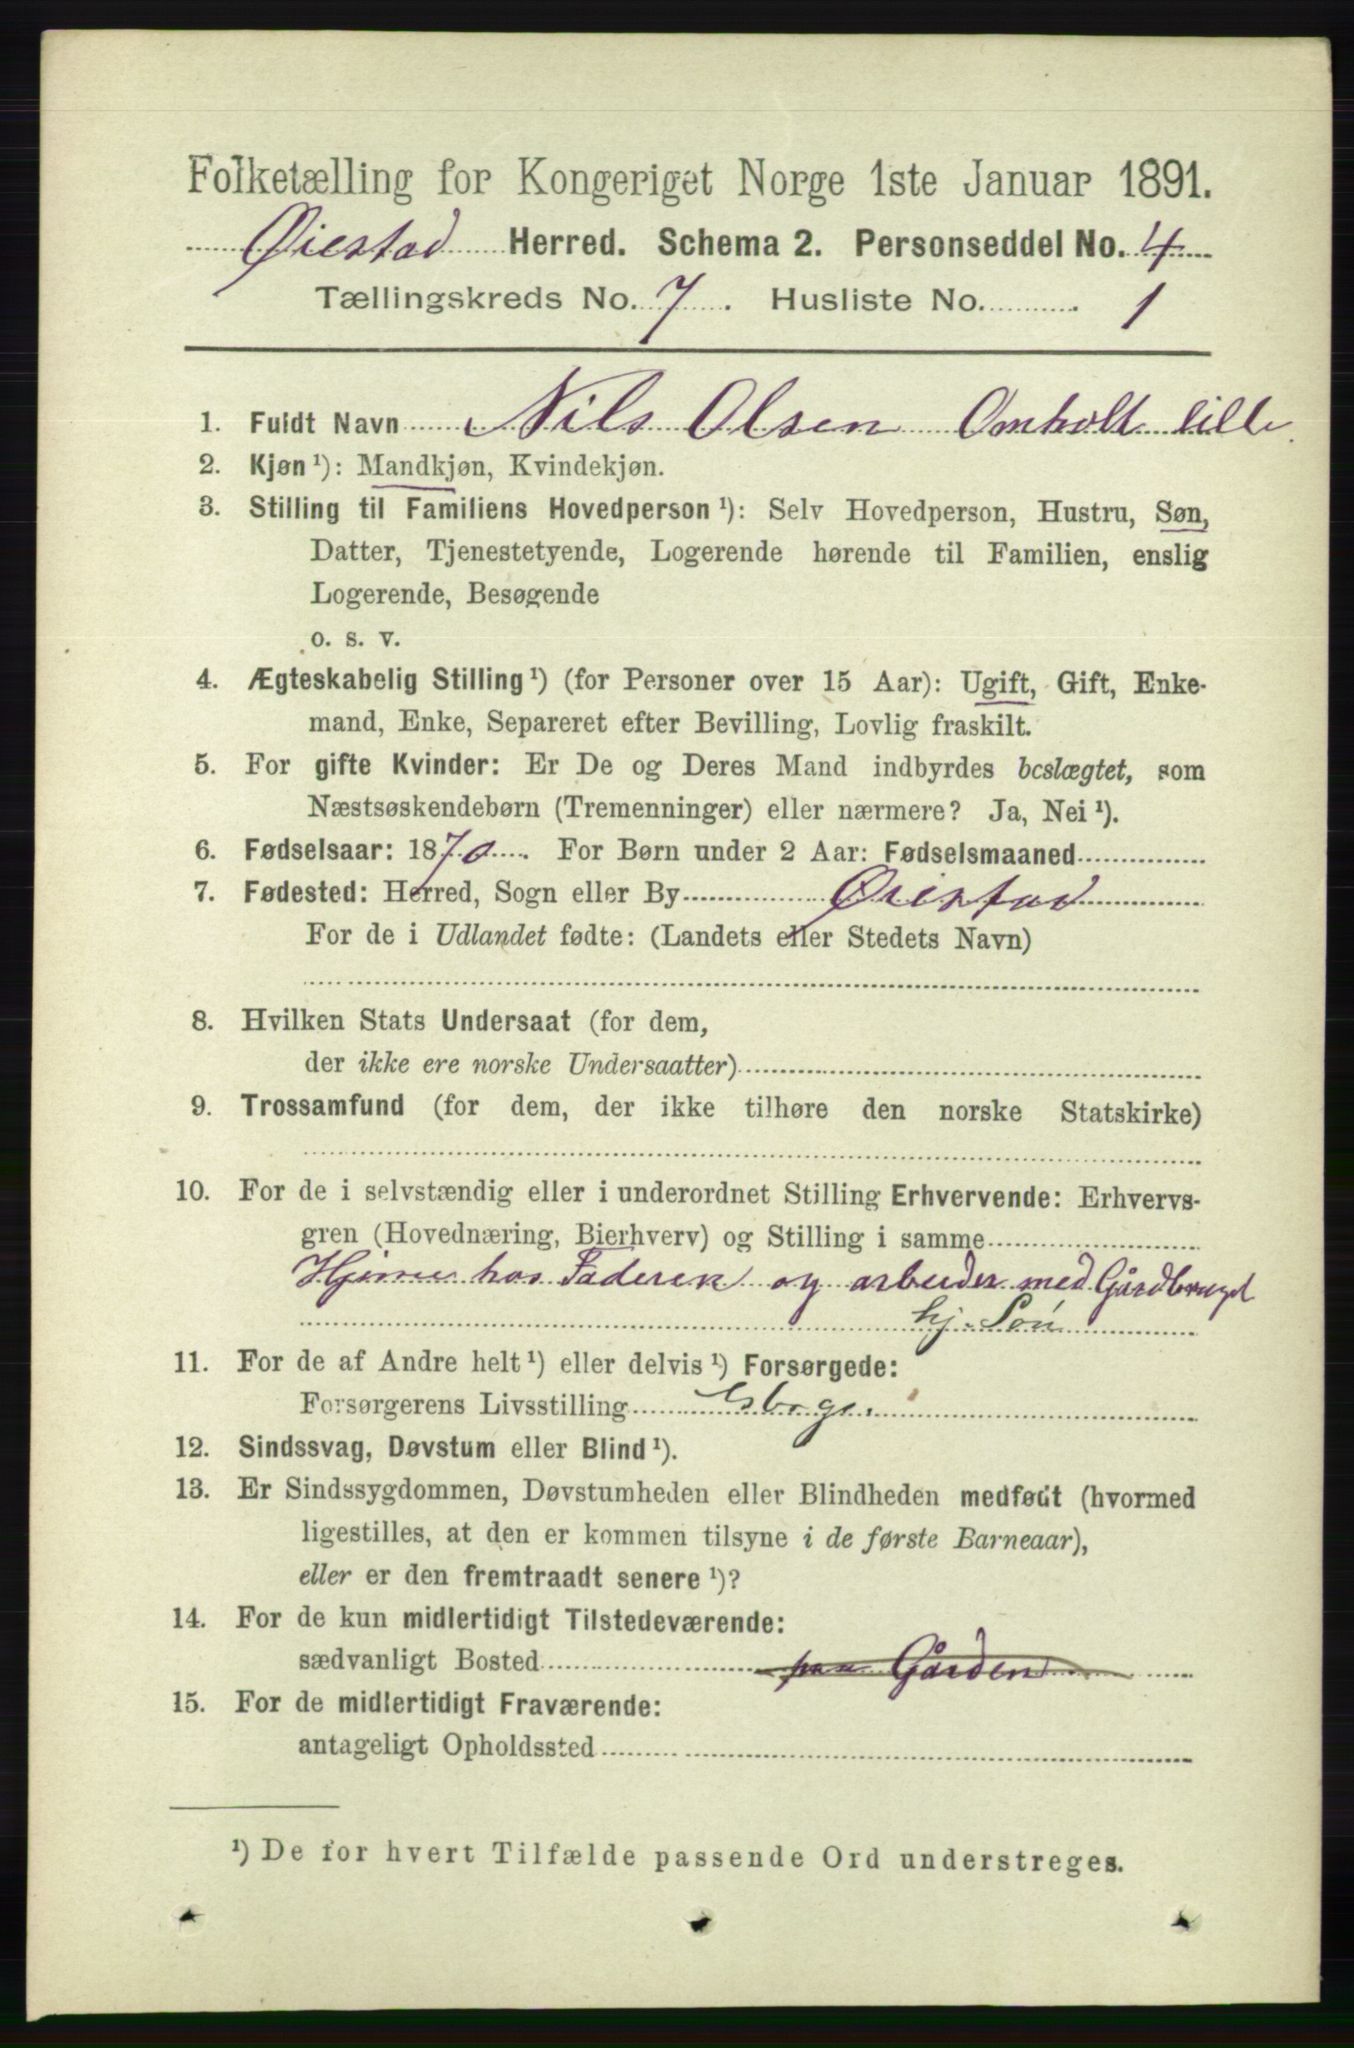 Folketælling for Kongeriget Norge 1ste Januar 1891.
Øiestad Herred. Schema 2. Personseddel No. 4
Tællingskreds No. 7. Husliste No. 1
1. Fuldt Navn Nils Olsen Omholt lille
2. Kjøn ¹): Mandkjøn, Kvindekjøn.
3. Stilling til Familiens Hovedperson ¹): Selv Hovedperson, Hustru, Søn,
Datter, Tjenestetyende, Logerende hørende til Familien, enslig
Logerende, Besøgende
o. s. v.
4. Ægteskabelig Stilling ¹) (for Personer over 15 Aar): Ugift, Gift, Enke-
mand, Enke, Separeret efter Bevilling, Lovlig fraskilt.
5. For gifte Kvinder: Er De og Deres Mand indbyrdes beslægtet, som
Næstsøskendebørn (Tremenninger) eller nærmere? Ja, Nei ¹).
6. Fødselsaar: 1870. For Børn under 2 Aar: Fødselsmaaned
7. Fødested: Herred, Sogn eller By Øiestad
For de i Udlandet fødte: (Landets eller Stedets Navn)
8. Hvilken Stats Undersaat (for dem,
der ikke ere norske Undersaatter)
9. Trossamfund (for dem, der ikke tilhøre den norske Statskirke)
10. For de i selvstændig eller i underordnet Stilling Erhvervende: Erhvervs-
gren (Hovednæring, Bierhverv) og Stilling i samme
Hjeme hos Faderen og arbeider med Gårdbruget
hj. Søn
11. For de af Andre helt ¹) eller delvis ¹) Forsørgede:
Forsørgerens Livsstilling
12. Sindssvag, Døvstum eller Blind ¹).
13. Er Sindssygdommen, Døvstumheden eller Blindheden medfødt (hvormed
ligestilles, at den er kommen tilsyne i de første Barneaar),
eller er den fremtraadt senere ¹)?
14. For de kun midlertidigt Tilstedeværende:
sædvanligt Bosted paa Gården
15. For de midlertidigt Fraværende:
antageligt Opholdssted
¹) De for hvert Tilfælde passende Ord understreges.